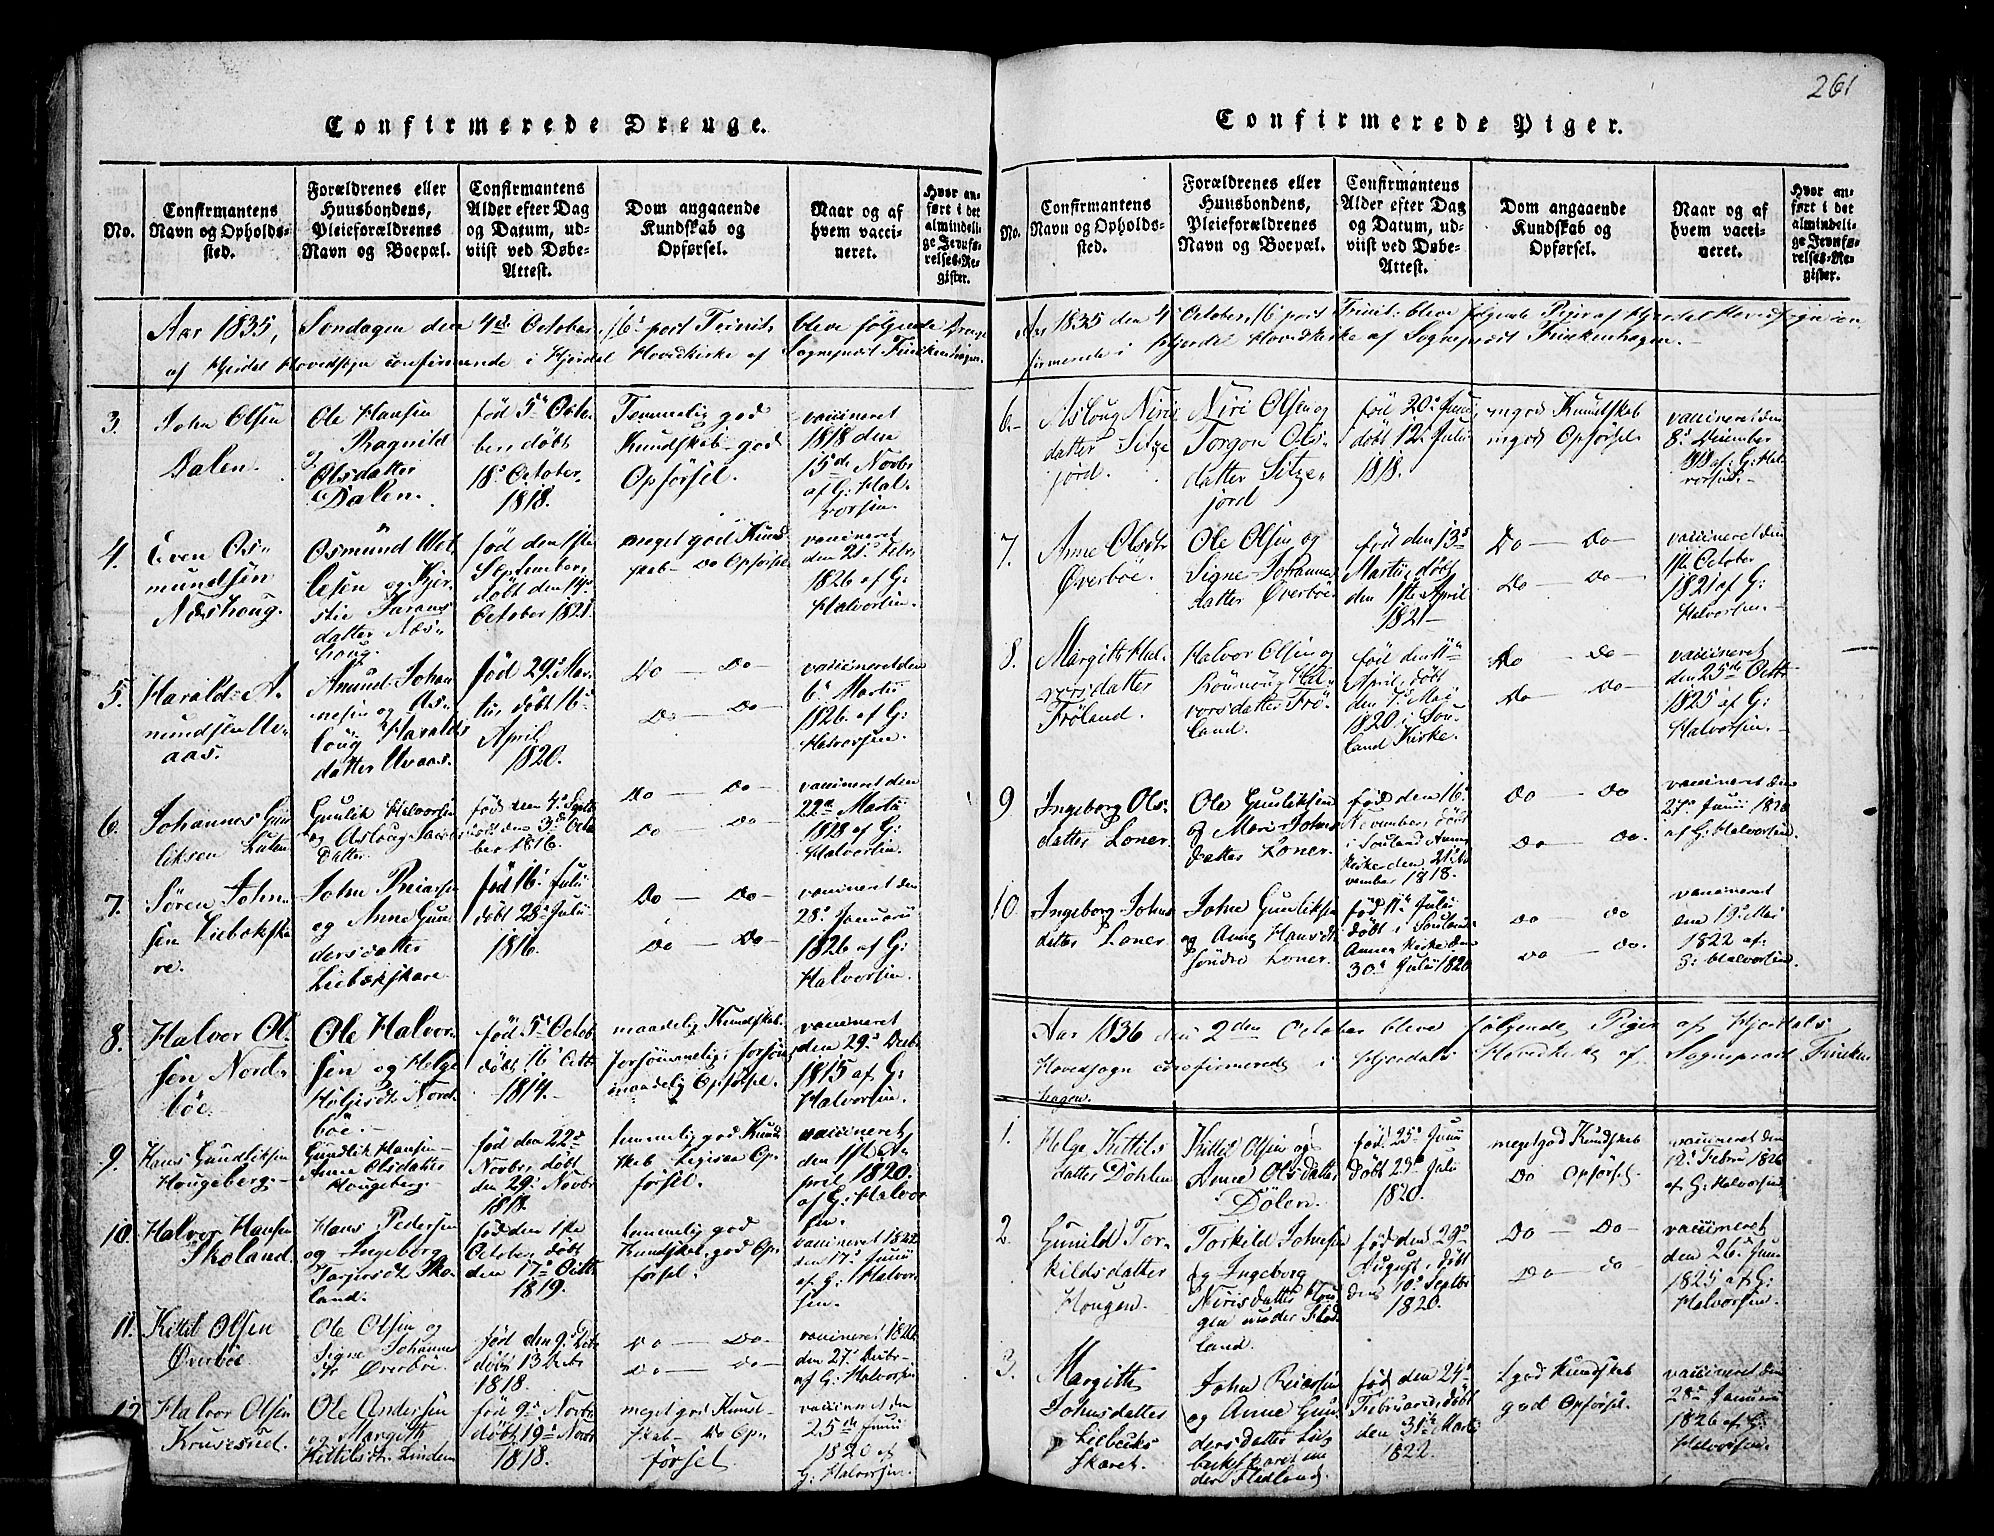 261
Confirmerede Drenge.
No.
Confirmantens
Navn og Opholds-
sted.
Forældrenes eller
Huusbondens,
Pleieforældrenes
Navn og Boepæl.
Confirmantens
Alder efter Dag
og Datum, ud-
viist ved Døbe-
Attest.
Dom angaaende
Kundskab og
Opførsel.
Naar og af
hvem vacci-
neret.
Hvor an-
ført i det
almindeli-
ge Jevnfø-
relses-Re-
gister.
Aar 1835, Søndagen den 4de October, 16de post Trinit: bleve følgende Drenge
af Hjerdal Hovedsogn confirmerede i Hjerdal Hovedkirke af Sognepræst Finckenhagen.
3.
John Olsen
Dalen.
Ole Hansen
og Ragnild
Olsdatter
Dalen.
fød 5te Octo
ber døbt
18de October
1818.
Temmelig god
Kundskab god
Opførsel.
vaccineret
1818 den
15de Novbr
af G: Hal-
vorsen.
4.
Even Os-
mundsen
Næshoug.
Osmund Wet-
lesen og Kjer-
stie
datter Næs-
houg.
fød den 1ste
September,
døbt den 14de
October 1821.
meget god Kund-
skab - Do Opførsel
vaccineret
den 21de Febr
1826 af G:
Halvorsen.
5.
Harald A-
mundsen Uv-
aas.
Amund Johan
nesen og As-
loug Haralds
datter Uvaas.
fød 29de Mar-
tii, døbt 16de
April
1820.
Do - Do -
Do - Do -
vaccineret den
6te Martii
1826. af G:
Halvorsen.
6.
Johannes Gun
liksen
Gunlik Halvorsen
og Aslaug
Datter
fød den 4de Septbr
døbt den 3de Octo
ber 1816.
Do - Do -
Do - Do -
vaccineret den
22de Martii
1828 af G:
Halvorsen.
7.
Søren John-
sen Liebekska
re.
John Reiarsen
og Anne Gun
dersdatter
Liebekskare.
fød 16de Julii
døbt 28de Julii
1816.
Do - Do -
Do - Do -
vaccineret den
28de Januarii
1826 af G:
Halvorsen.
8.
Halvor Ol-
sen Nord-
bøe.
Ole Halvor-
sen og Helge
Holjesdtr Nord
bøe.
fød 5te Octob
døbt 16de Octb
1814.
maadelig Kundskab.
forsømmelig
maadelig Opførsel.
vaccineret
den 29de Decbr
1815 af G:
Halvorsen.
9.
Hans Gundliksen
Hougeberg.
Gundlik Hansen
Anne Olsdatter
Hougeberg.
fød den 22de
Novbr, døbt
den 29de Novbr
1818.
temmelig god Kund
skab Ligesaa Op-
førsel.
vaccineret
den 1ste A-
pril 1820.
af G: Halvor
sen.
10.
Halvor Hansen
Skoland.
Hans Pedersen
og Ingeborg
Torgersdtr Sko-
land.
fød den 1ste
October, døbt
den 17de Octbr
1819.
temmelig god
Kundskab, god Op-
førsel.
vaccineret 1822
den 17de Junii
af G: Halvor-
sen.
11.
Kittil Olsen
Øverbøe
Ole Olsen og
Signe Johannes
dtr Øverbøe.
fød den 9de Decbr
døbt 13 Decbr
1818.
Do - Do -
Do - Do -
vaccineret 1826
den 27de Decbr
af G: Halvorsen
12
Halvor Olsen
Ole Andersen
og Margith
Kittilsdtr Linden
fød 9de Novbr
døbt 19de Novbr
1818.
meget god Kund-
skab - Do Op-
førsel.
vaccineret den
25de Junii
1820 af
G: Halvorsen.
Confirmerede Piger.
No.
Confirmantens
Navn og Opholds-
sted.
Forældrenes eller
Huusbondens,
Pleieforældrenes
Navn og Boepæl.
Confirmantens
Alder efter Dag
og Datum, ud-
viist ved Døbe-
Attest.
Dom angaaende
Kundskab og
Opførsel.
Naar og af
hvem vacci-
neret.
Hvor an-
ført i det
almindeli-
ge Jevnfø-
relses-Re-
gister.
Aar 1835 den 4de October, 16 post Trinit: bleve følgende Piger af Hjerdal Hovedsogn con
firmerede i Hjerdal Hovedkirke af Sognepræst Finckenhagen.
6.
Asloug Niris
datter Sitze
jord.
Niri Olsen og
Torgon Ols-
datter Sitze-
jord
fød 20de Junii
døbt 12te Julii
1818.
mgod Kundskab
mgod Opførsel
vaccineret den
8de December
1818 af G: Hal-
vorsen.
7.
Anne Olsdtr
Øverbøe.
Ole Olsen og
Signe Johannes
datter Øverbøe
fød den 13de
Martii, døbt
den 1ste April
1821
Do - Do -
Do - Do -
vaccineret den
11te October
1821 af G:
Halvorsen.
8.
Margith Hal-
vorsdatter
Frøland.
Halvor Olsen og
Rounoug Hal-
vorsdatter Frø-
land.
fød den 11te
April, døbt
den 7de Maj
1820 i Sou-
land Kirke.
Do - Do -
Do - Do -
vaccineret
den 25de Octbr
1825 af G:
Halvorsen.
9
Ingeborg Ols-
datter Loner
Ole Gunliksen
og Mari Johns
datter Loner.
fød den 16de
November, døbt
i Souland Annex
Kirke den 21de No
vember 1818.
Do - Do
Do - Do.
vaccineret den
27de Junii 1820
af G: Halvorsen.
10
Ingeborg Johns
datter Loner.
John Gunliksen
og Anne Hansdtr
søndre Loner.
fød 11te Julii
døbt i Souland
Annex Kirke den
30de Julii 1820
Do - Do
Do - Do.
vaccineret
den 19de Maj
1822 af
G: Halvorsen.
Aar 1836 den 2den October bleve følgende Piger af Hjerdals
Hovedsogn confirmerede i Hjerdals Hovedkirke af Sognepræst Fincken
hagen.
1.
Helge Kittils
datter Døhlen
Kittil Olsen og
Anne Olsdatter
Dølen.
fød 25de Junii
døbt 23de Julii
1820.
meget god Kundskab
Do Opførsel
vaccineret den
12te Febru 1826
af G: Halvorsen
2.
Gunild Tor-
kildsdatter
Hougen.
Torkild Johnsen
og Ingeborg
Nirisdatter Hou
gen under Flad
land.
fød den 29de
August, døbt
den 10de Septbr
1820.
Do - Do -
Do - Do
vaccineret
den 26de Jun
1825 af G:
Halvorsen.
3.
Margith
Johnsdatter
Liebeks
skaret.
John Reiarsen
og Anne Gun
dersdatter Lie
bekskaret un
der Fladland
fød den 24de
Februar, døbt
den 31te Marts
1822.
god Kundskab
god Opførsel.
vaccineret den
28de Januarii
1826 af G:
Halvorsen.